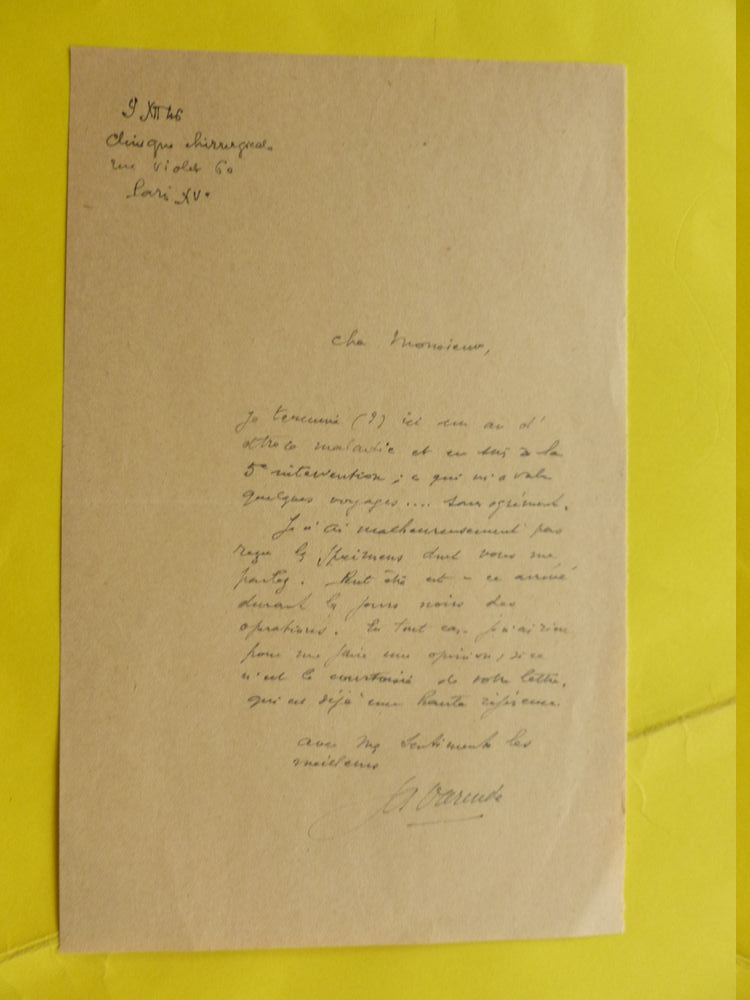 9 XII 46
Clinique chirurgicale
rue Violet 60
Paris XVe
Cher Monsieur,
Je termine (?) ici un an d'
atroce maladie et en suis à la
5e intervention ; ce qui m'a valu
quelques voyages.... sans agrément.
Je n'ai malheureusement pas
reçu les spécimens dont vous me
parlez. Peut être est-ce arrivé
durant les jours noirs des
opérations. En tout cas je n'ai rien
pour me faire une opinion, si ce
n'est la courtoisie de votre lettre,
qui est déjà une haute référence
avec mes sentiments les
meilleurs
La Varende